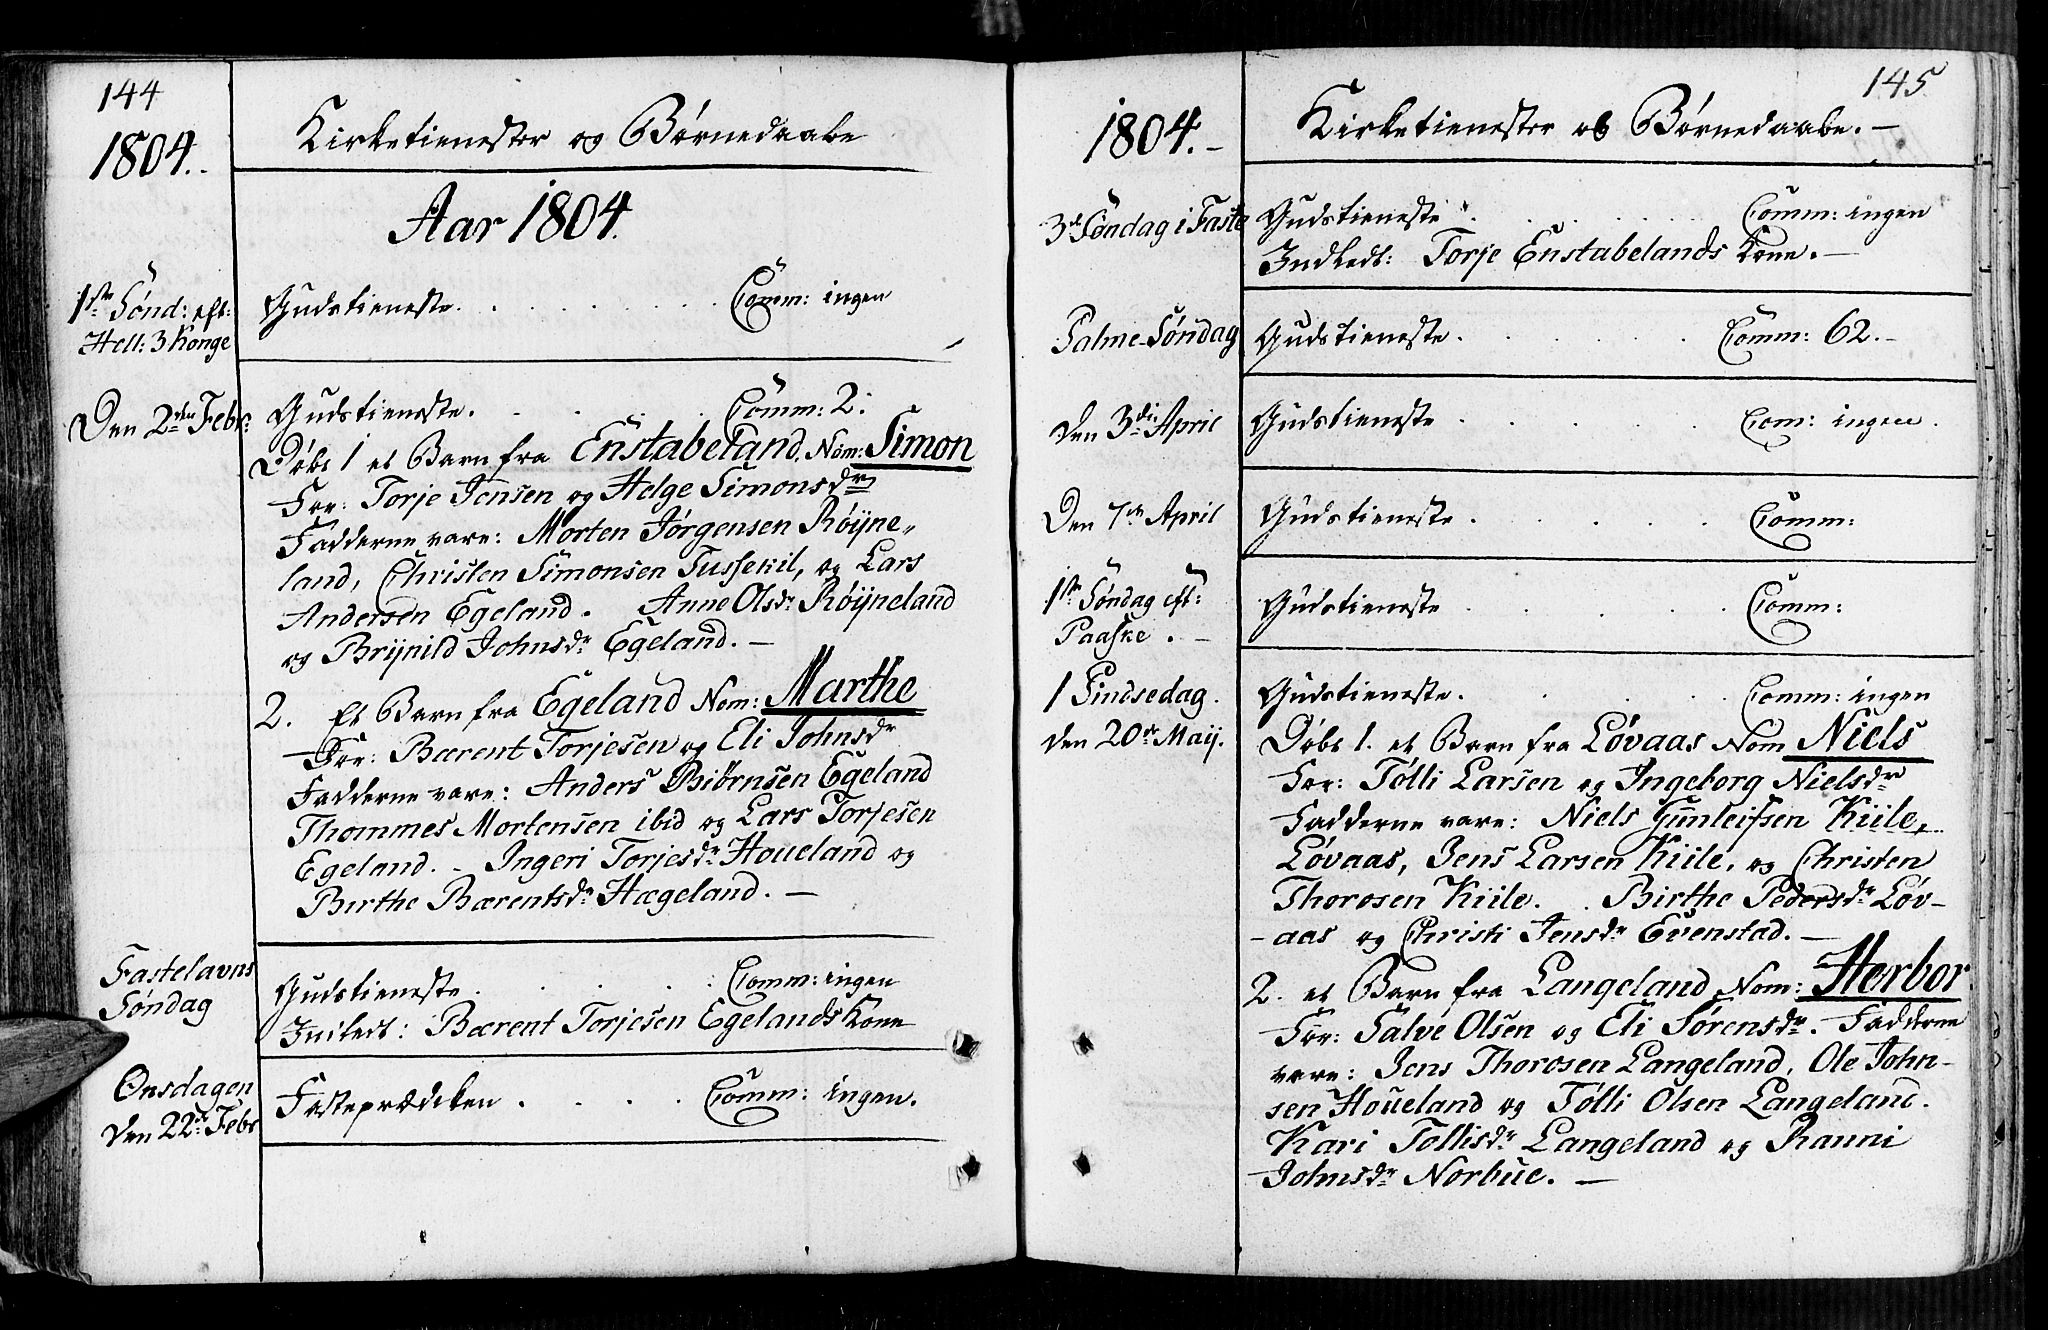 144
1804.
Kirketienester og Børnedaabe
Aar 1804.
1ste Sønd: eft:
Hell: 3 Konge
Gudstieneste. . . . . . . Comm: ingen
Den 2den Febr:
Gudstieneste. . . . . Comm: 2.
Døbt 1 et Barn fra Enstabeland, Nom: Simon
For: Torje Jensen og Helge Simonsdr
Fadderne vare: Morten Jørgensen Røijne„
land, Christen Simonsen Tussekil, og Lars
Andersen Egeland. Anne Olsdr Røijneland
og Brijnild Johnsdr Egeland. —
2. Et Barn fra Egeland Nom: Marthe
For: Bærent Torjesen og Eli Johnsdr
Fadderne vare: Anders Biørnsen Egeland
Thommes Mortensen ibid og Lars Torjesen
Egeland. - Ingeri Torjesdr Houeland og
Birthe Bærentsdr Hægeland. —
Fastelavns
Søndag
Gudstieneste . . . . : Comm: ingen
Indledt: Bærent Torjesen Egelands Kone
Onsdagen
den 22de Febr
Fasteprædiken . . . . Comm: ingen.
145
1804. -
Kirketienester og Børnedaabe. —
3de Søndag i Faste
Gudstieneste . . . . . Comm: ingen
Indledt: Torje Enstabelands Kone. —
Palme-Søndag
Gudstieneste . . . . . Comm: 62. -
den 3die April
Gudstieneste . . . . . Com: ingen.
Den 7de April
Gudstieneste . . . . . Comm:
1ste Søndag eft:
Paaske. -
Gudstieneste . . . . . Comm:
1 Pindsedag.
den 20de Maij.
Gudstieneste. . . . . Comm: ingen
Døbt 1. et Barn fra Løvaas Nom Niels
For: Tølli Larsen og Ingeborg Nielsdr
Fadderne vare: Niels Gunleifsen Kiile,
Løvaas, Jens Larsen Kiile, og Christen
Thorosen Kiile. . Birthe Pedersdr Løv-
-aas og Christi Jensdr Evenstad. —
2. et Barn fra Langeland Nom: Herbor
For: Salve Olsen og Eli Sørensdr. Fadderne
vare: Jens Thorosen Langeland, Ole John-
sen Houeland og Tølli Olsen Langeland.
Kari Tollisdr Langeland og Ranni
Johnsdr Norbue. —